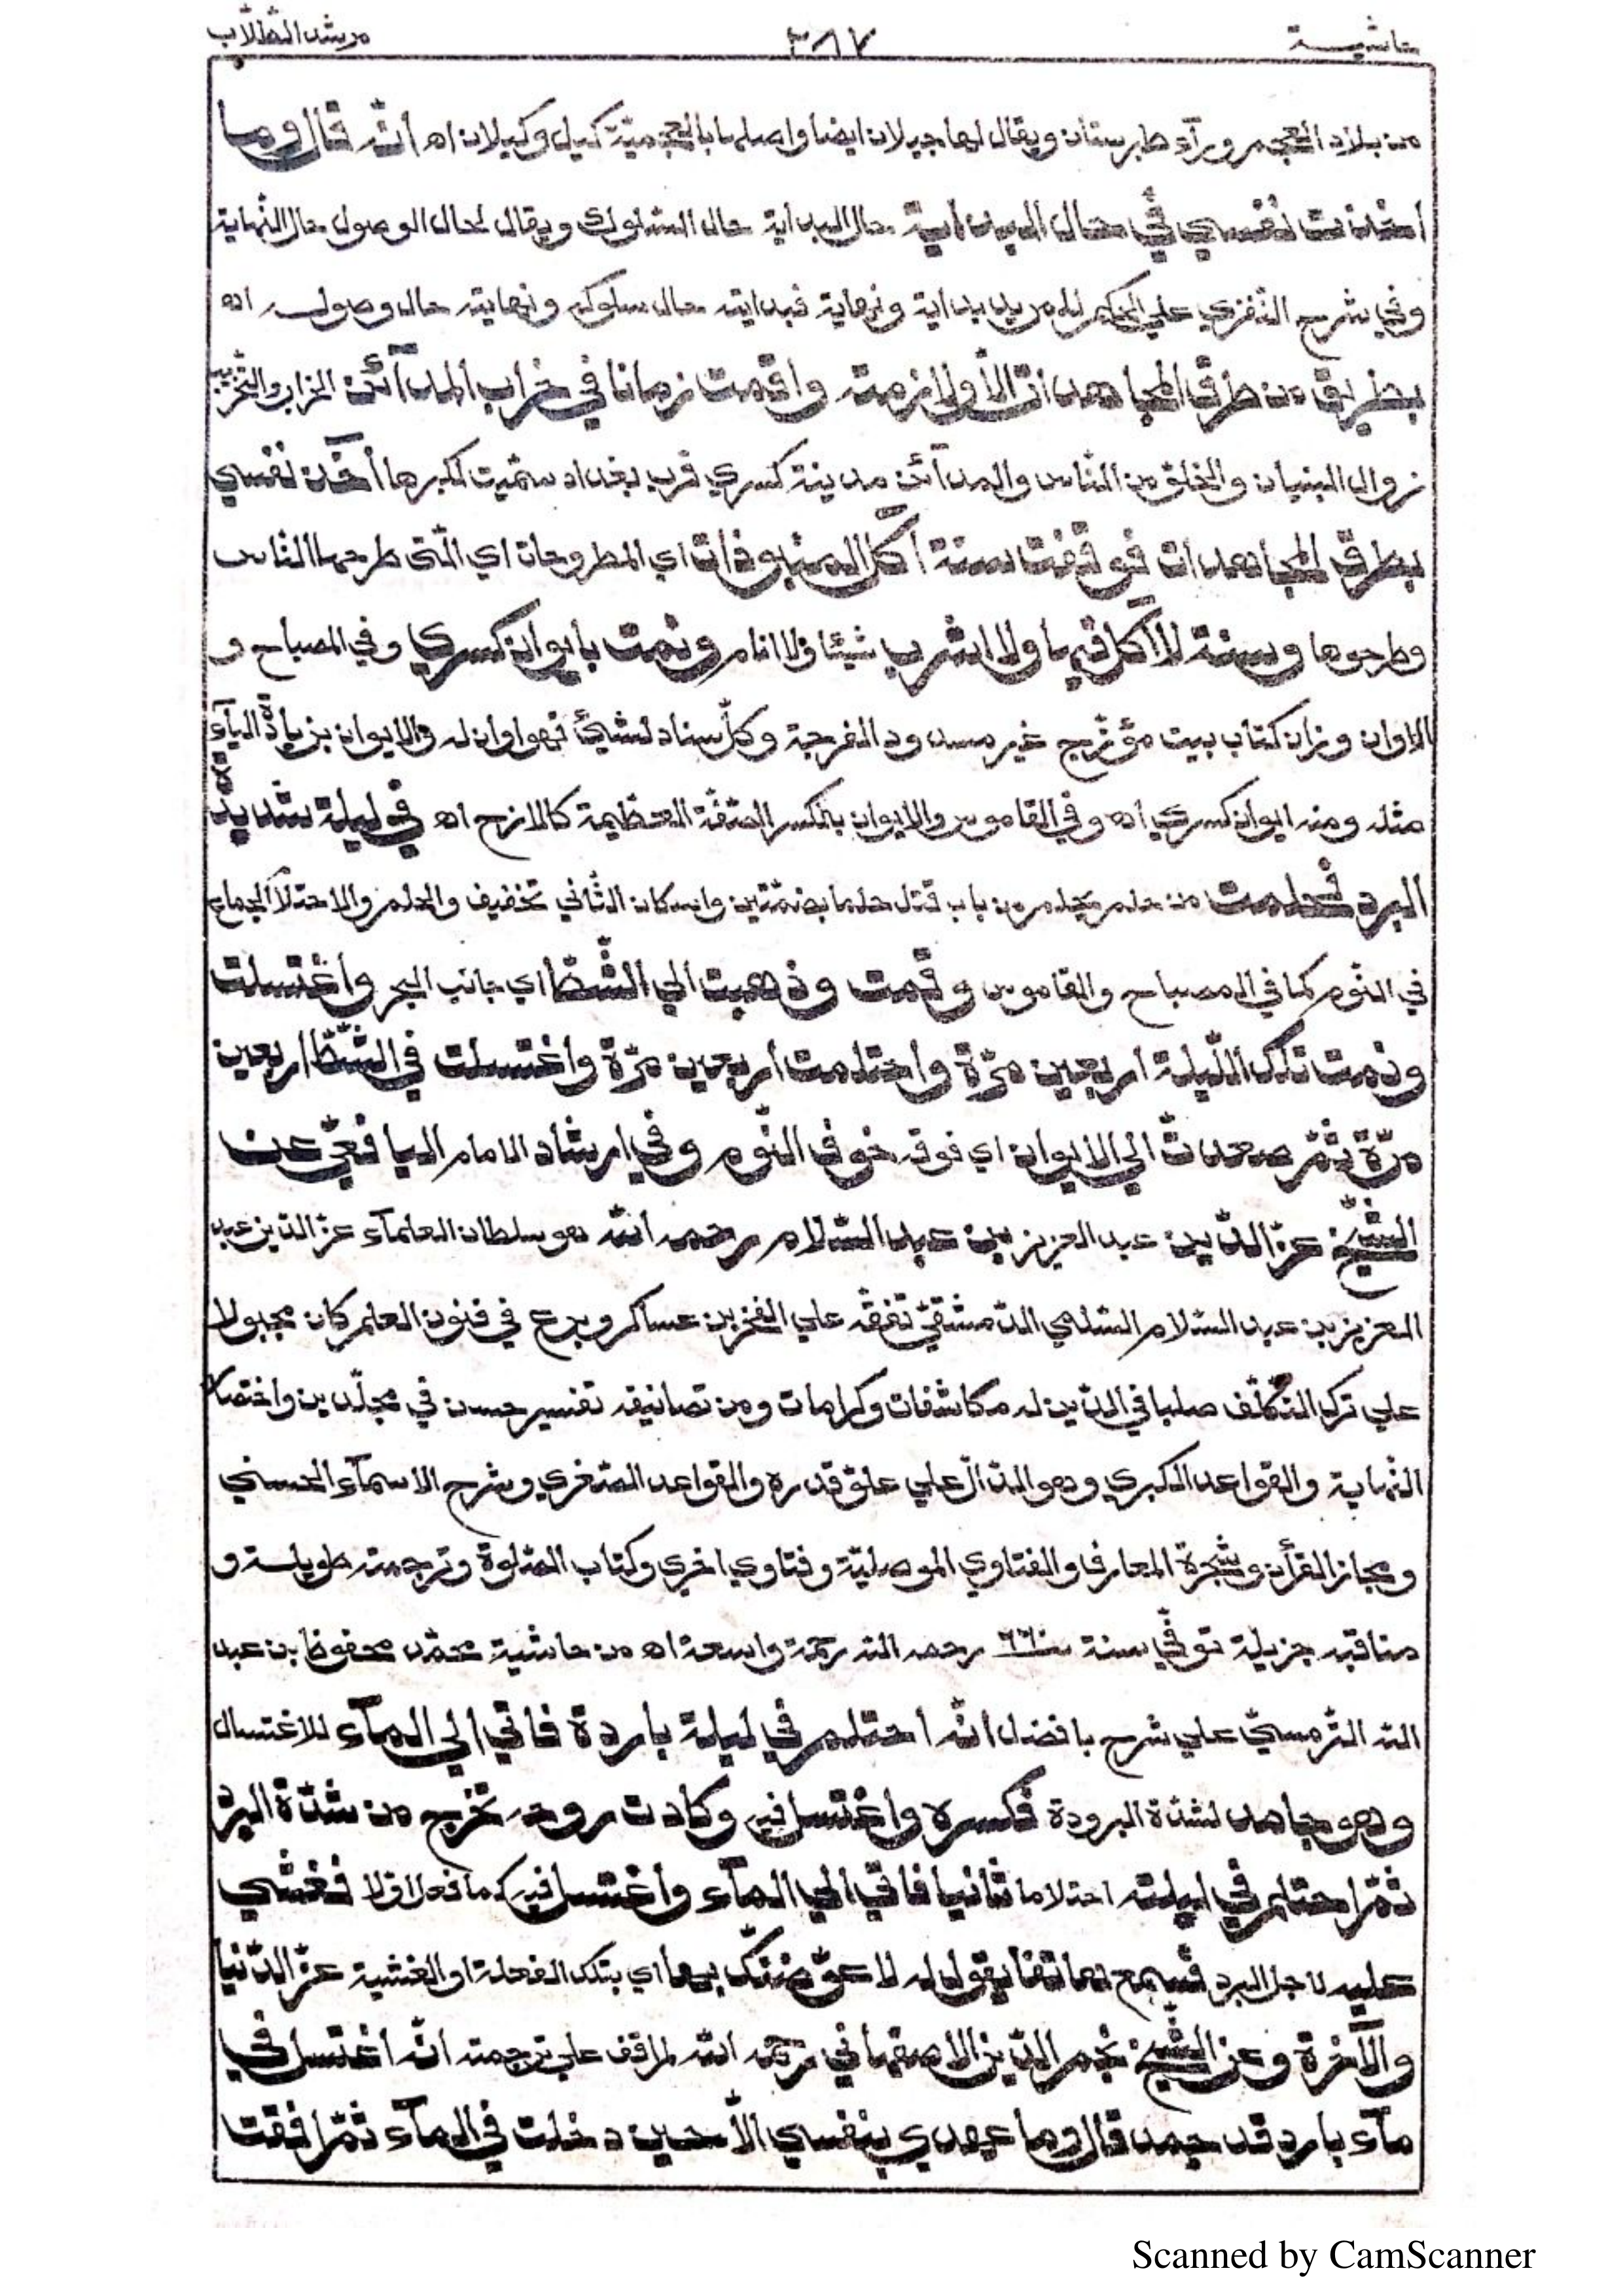 حاشية ٣٨٧ مرشد الطّلّاب
من بلاد العجم ورآء طبرستان ويقال لها جيلان ايضا واصلها بالعجميّة كيل وكيلان اه أنّه قال وما
أخذت نفسي في حال البداية حال البداية حال السّلوك ويقال لحال الوصول حال النّهاية
وفي شرح النّفزي علي الحكم لمريد بداية ونهاية فبدايته حال سلوكه ونهايته حال وصوله اه
بطريق من طرق المجاهدات الّا ولازمته واقمت زمانا في خراب المدآئن الخراب والتّخريب
زوال البنيان والخلق من النّاس والمدآئن مدينة كسري قرب بغداد سمّيت لكبرها أخذت نفسي
بطرق المجاهدات فوقفت سنة آكل المنبوذات اي المطروحات اي الّتي طرحها النّاس
وطرحوها وسنة لا آكل فيها ولا اشرب شيئا ولا انام ونمت بايوان كسري وفي المصباح و
الاوان وزان كتاب بيت مؤزّج غير مسدود الفرجة وكلّ سناد لشيئ فهو اوان له والايوان بزيادة اليآء
مثله ومنه ايوان كسري اه وفي القاموس والايوان بالكسر الصّفّة العظيمة كالازج اه في ليلة شديدة
البرد فحلمت من حلم يحلم من باب قتل حلما بضمّتين واسكان الثّاني تخفيف والحلم والاحتلام الجماع
في النّوم كما في المصباح والقاموس وقمت وذهبت الي الشّطّ اي جانب البحر واغتسلت
ونمت تلك اللّيلة اربعين مرّة واحتلمت اربعين مرّة واغتسلت في الشّطّ اربعين
مرّة ثمّ صعدت الي الايوان اي فوقه خوف النّوم وفي ارشاد الامام اليافعيّ عن
الشّيخ عزّ الدّين عبد العزيز بن عبد السّلام رحمه اللّه هو سلطان العلمآء عزّ الدّين عبد
العزيز بن عبد السّلام السّلمي الدّمشقيّ تفقّه علي الفخر بن عساكر وبرع في فنون العلم كان مجبولا
علي ترك التّكلّف صلبا في الدّين له مكاشفات وكرامات ومن تصانيفه تفسير حسن في مجلّدين واختصار
النّهاية والقواعد الكبري وهو الدّالّ علي علوّ قدره والقواعد الصّغري وشرح الاسمآء الحسني
ومجاز القرأن وشجرة المعارف والفتاوي الموصليّة وفتاوي اخري وكتاب الصّلوة وترجمته طويلة و
مناقبه جزيلة توفّي سنة ٦٦٠ رحمه اللّه رحمة واسعة اه من حاشية محمّد محفوظ بن عبد
اللّه التّرمسيّ علي شرح بافضل أنّه احتلم في ليلة باردة فاتي الي المآء للاغتسال
وهو جامد لشدّة البرودة فكسره واغتسل فيه وكادت روحه تخرج من شدّة البرد
ثمّ احتلم في ليلته احتلاما ثانيا فاتي الي المآء واغتسل فيه كما فعل اوّلا فغشي
عليه لاجل البرد فسمع هاتفا يقول له لاعوّضنّك بها اي بتلك الفعلة او الغشية عزّ الدّنيا
والآخرة وعن الشّيخ نجم الدّين الاصفهاني رحمه اللّه لم اقف علي ترجمته أنّه اغتسل في
مآء بارد قد جمد قال وما عهدي بنفسي الّا حين دخلت في المآء ثمّ افقت
Scanned by CamScanner